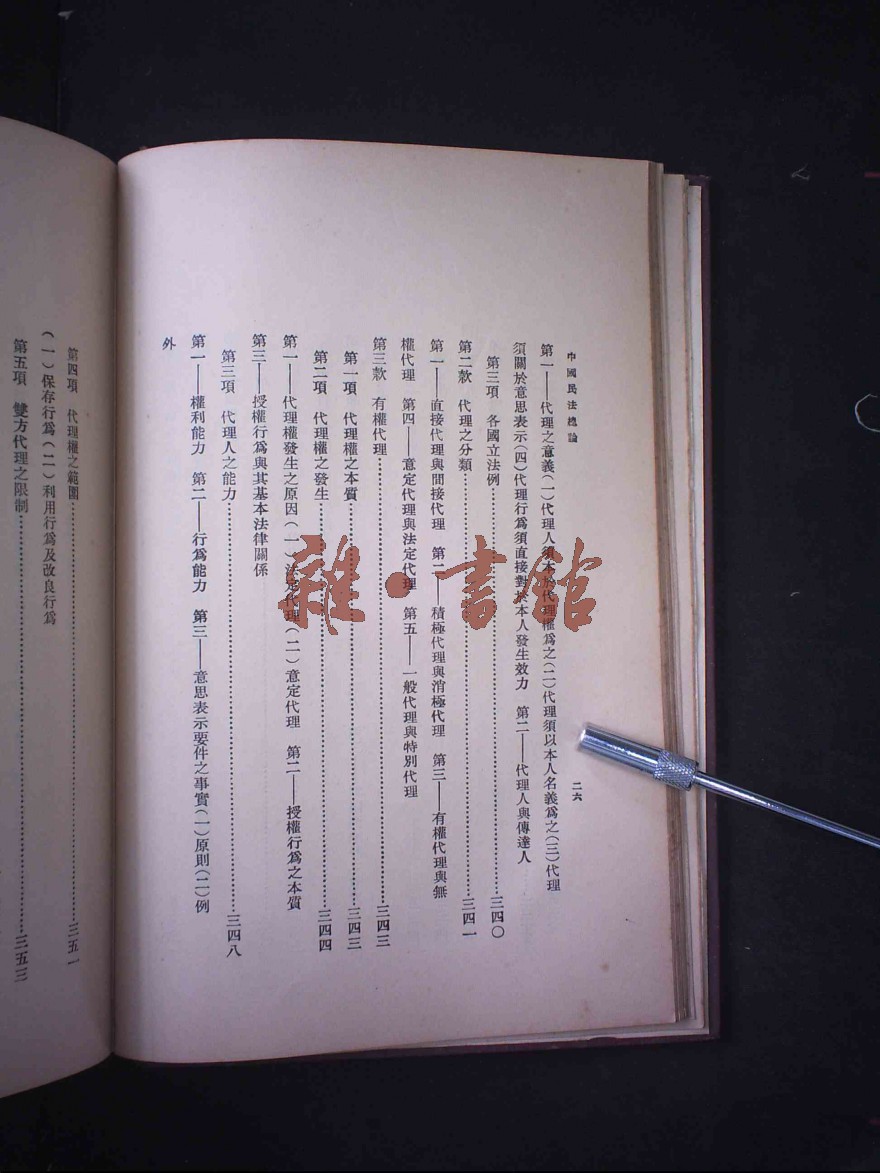 中國民法總論
二六
第一——代理之意義(一)代理人須本於代理權爲之(二)代理須以本人名義爲之(三)代理
須關於意思表示(四)代理行爲須直接對於本人發生效力 第二——代理人與傳達人
第三項 各國立法例………三四〇
第二款 代理之分類………三四一
第一——直接代理與間接代理 第二——積極代理與消極代理 第三——有權代理與無
權代理 第四——意定代理與法定代理 第五——一般代理與特別代理
第三款 有權代理………三四三
第一項 代理權之本質………三四三
第二項 代理權之發生………三四四
第一——代理權發生之原因(一)法定代理(二)意定代理 第二——授權行爲之本質
第三——授權行爲與其基本法律關係
第三項 代理人之能力………三四八
第一——權利能力 第二——行爲能力 第三——意思表示要件之事實(一)原則(二)例
外
第四項 代理權之範圍………三五一
(一)保存行爲(二)利用行爲及改良行爲
第五項 雙方代理之限制………三五三
雜·書館